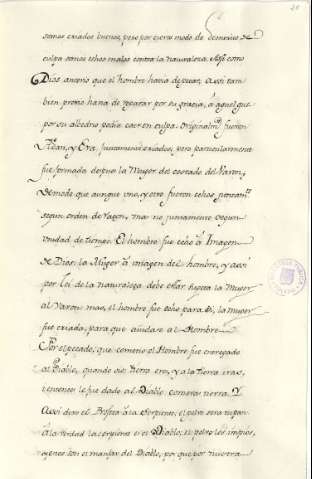 somos criados buenos, pero por cierto modo de de
culpa somos echos malos contra la naturaleza. Assi como
Dios antevio que el hombre havia de pecar, assi tam
bien previo havia de reparar por su gracia, à aquel que
por su albedrio podia caer en culpa. Originalm.te fueron
Adan, y Eva juntamente criados; pero particularmente
fue formada despues la Muger del costado del Varon,
Demode que aunque uno, y otro fueron echos juntam.te
segun orden de razon, mas no juntamente segun
verdad de tiempo. El hombre fue echo à Imagen
de Dios, la Muger à imagen del hombre, y assi
por Lei de la naturaleza debe estar sugeta la Muger
al Varon: mas, el hombre fue echo para si, la muger
fue criada, para que aiudase al Hombre.
Por el pecado, que cometio el Hombre fue entregado
al Diablo, quando oio: tierra eres, y a la tierra iras,
entonces le fue dado al Diablo: comeras tierra. Y
Assi dice el Profeta à la Serpiente, el polvo sera su pan:
à la verdad la serpiente es el Diablo; el polvo los impios,
quienes son el manjar del Diablo, porque por nuestra